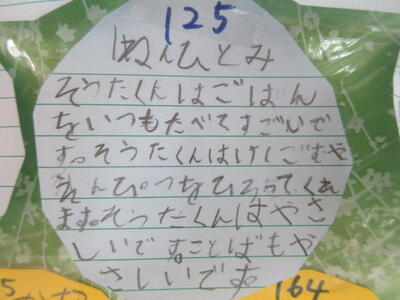 125
ぬんひとみ
そうたくんはごはん
をいつもたべてすごいで
す。そうたくんはけしごむや
えんぴつをひろってくれ
ます。そうたくんはやさ
しいです。ことばもや
さしいです。
5
164